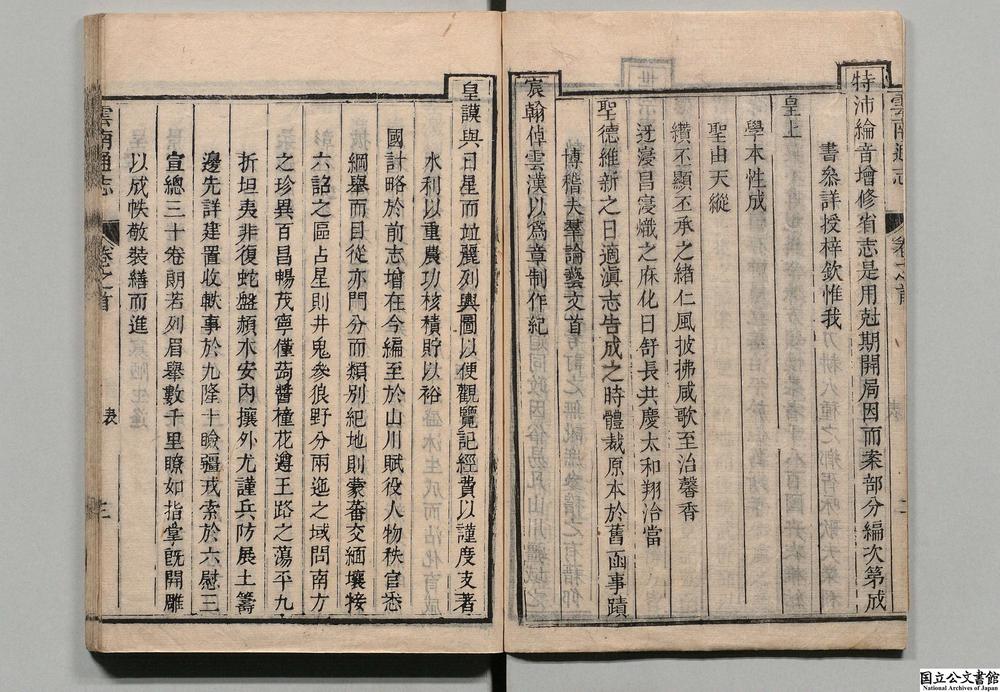 特沛綸音增修省志是用尅期開局因而案部分編次第成
書叅詳授梓欽惟我
皇上
學本性成
聖由天縱
纘丕顯丕承之緒仁風披拂咸歌至治馨香
迓寖昌寖熾之庥化日舒長共慶太和翔洽當
聖德維新之日適滇志告成之時體裁原本於舊函事蹟
博稽夫羣論藝文首
宸翰倬雲漢以爲章制作紀
皇謨與日星而竝麗列輿圖以便觀覽記經費以謹度支著
水利以重農功核積貯以裕
國計略於前志增在今編至於山川賦役人物秩官悉
綱舉而目從亦門分而類別紀地則蒙蕃交緬壤接
六詔之區占星則井鬼參狼野分兩迤之域問南方
之珍異百昌暢茂寧僅蒟醬橦花遵王路之蕩平九
折坦夷非復蛇盤頻水安內攘外尤謹兵防展土籌
邊先詳建置收軼事於九隆十瞼疆戎索於六慰三
宣總三十卷朗若列眉舉數千里瞭如指掌旣開雕
以成帙敬裝繕而進
雲南通志
卷之首
表
三
国立公文書館
National Archives of Japan